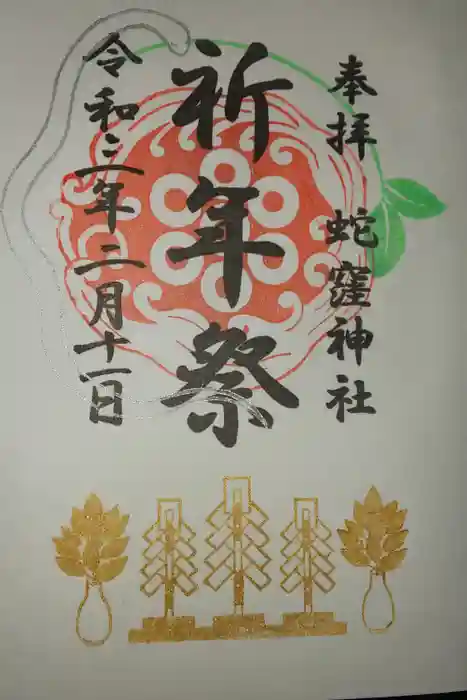 奉拝 蛇窪神社
祈年祭
令和三年二月十一日